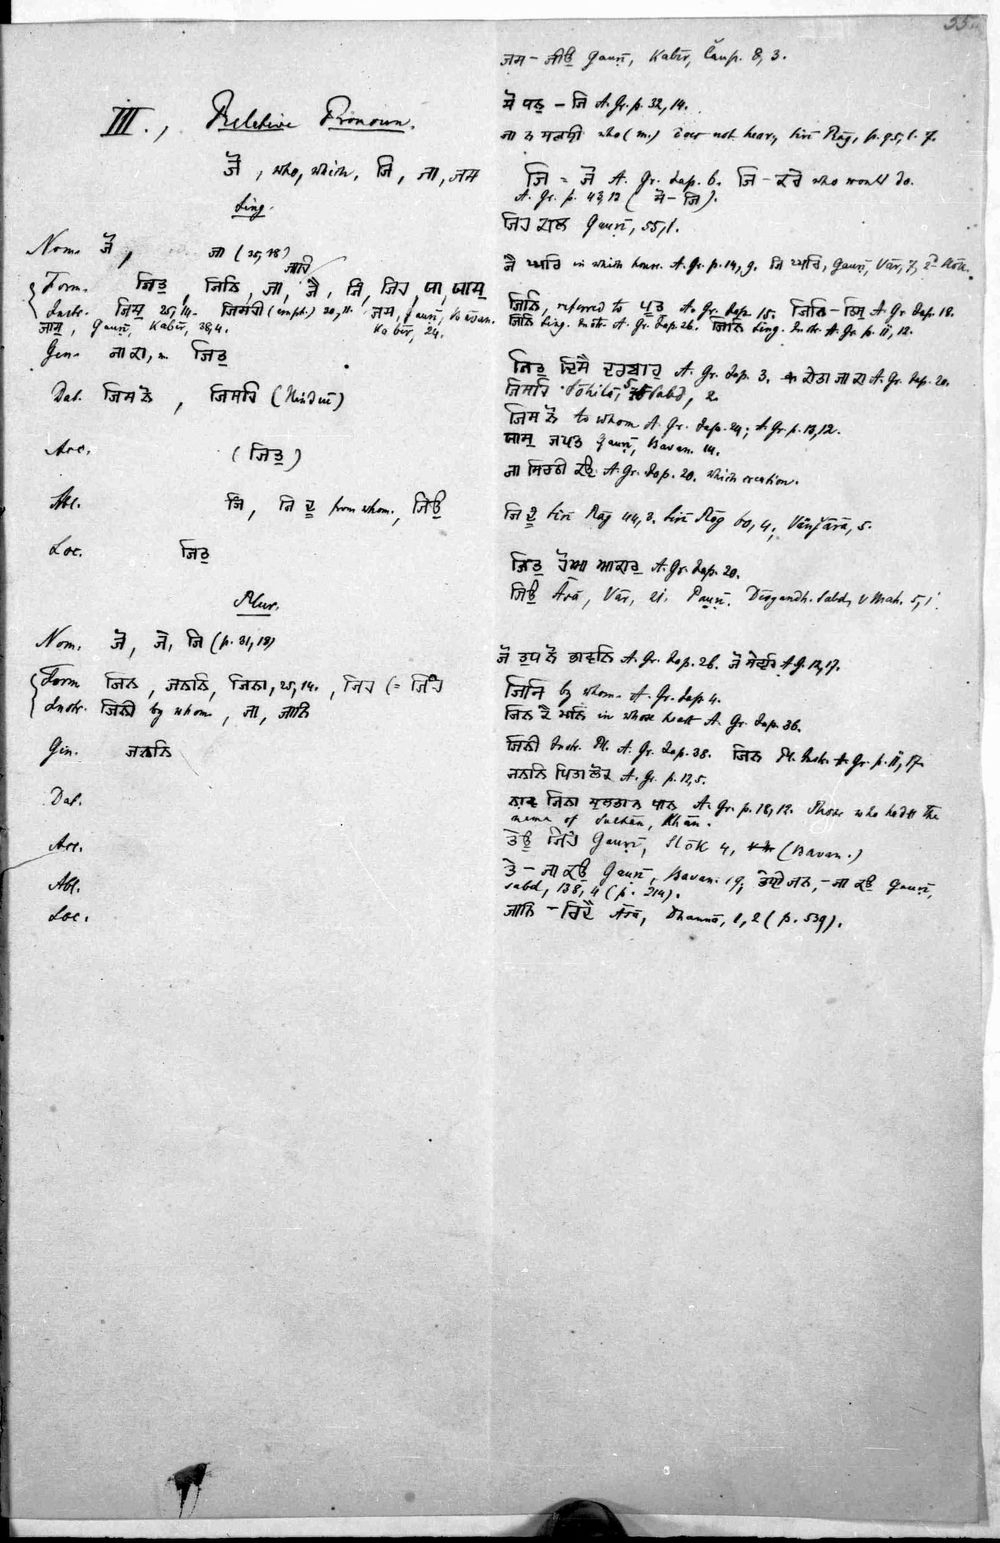 55
III., Relative Pronoun.
ਜੋ, who, which, ਜਿ, ਜਾ, ਜਸ
Sing.
Nom. ਜੋ, ਜਾ (25, 18)
ਜਾਹਿ
Form. ਜਿਤੁ, ਜਿਨਿ, ਜਾ, ਜੈ, ਜਿ, ਜਿਹ, ਯਾ, ਯਾਸੁ
Instr. ਜਿਸੁ 25, 14. ਜਿਸਹੀ (emph.) 20, 11. ਜਸ, Gauṛī,
ਜਾਸੁ, Gauṛī, Kabīr, 28, 4. Kabīr, 24.
Gen. ਜਾ ਕਾ, m. ਜਿਤੁ
Dat. ਜਿਸ ਨੋ, ਜਿਸਹਿ (Hinduī)
Acc. (ਜਿਤੁ)
Abl. ਜਿ, ਜਿ ਦੂ from whom, ਜਿਉ
Loc. ਜਿਤੁ
Plur.
Nom. ਜੋ, ਜੇ, ਜਿ (p. 31, 18)
Form ਜਿਨ, ਜਨਨਿ, ਜਿਨਾ, 25, 14., ਜਿਹ (= ਜਿਂਹ
Instr. ਜਿਨੀ by whom, ਜਾ, ਜਾਨਿ
Gen. ਜਨਨਿ
Dat.
Acc.
Abl.
Loc.
ਜਸ - ਜੀਉ Gauṛī, Kabīr, Čaup. 8, 3.
ਸੇ ਧਨੁ - ਜਿ A. Gr. p. 32, 14.
ਜਾ ਨ ਸੁਣਹੀ who (m.) does not hear, Sirī Rāg, p. 95, l. 7.
ਜਿ = ਜੋ A. Gr. Jap. 6. ਜਿ - ਕਰੇ who would do.
A. Gr. p. 43, 12 (ਸੇ - ਜਿ).
ਜਿਹ ਕਾਲ Gauṛī, 55, 1.
ਜੈ ਘਰਿ in which house. A. Gr. p. 14, 9. ਜਿ ਘਰਿ, Gauṛī, Vār, 7, 2 Slōk.
ਜਿਨਿ, referred to ਪੁਤ A. Gr. Jap. 15. ਜਿਨਿ - ਤਿਸੁ A. Gr. Jap. 18.
ਜਿਨਿ Sing. Instr. A. Gr. Jap. 26. ਜਿਨਿ Sing. Instr. A. Gr. p. 11, 12.
ਜਿਤੁ ਦਿਸੈ ਦਰਬਾਰੁ A. Gr. Jap. 3. ਕੀਤਾ ਜਾ ਕਾ A. Gr. Jap. 20.
ਜਿਸਹਿ Sōhilā, Sabd, 2.
ਜਿਸ ਨੋ to whom A. Gr. Jap. 24; A. Gr. p. 13, 12.
ਯਾਸੁ ਜਪਤ Gauṛī, Bavan. 14.
ਜਾ ਸਿਰਠੀ ਕਉ A. Gr. Jap. 20. which creation.
ਜਿ ਦੂ Sirī Rāg 44, 3. Sirī Rāg 60, 4; Vanǰārā, 5.
ਜਿਤੁ ਹੋਆ ਆਕਾਰੁ A. Gr. Jap. 20.
ਜਿਉ Āsā, Vār, 21. Pauṛī. Dēvgandh. Sabd, V Mah. 5, 1.
ਜੋ ਤੁਧ ਨੋ ਭਾਵਨਿ A. Gr. Jap. 26.
ਜਿਨਿ by whom. A. Gr. Jap 4.
ਜਿਨ ਕੈ ਮਨਿ in whose heart A. Gr. Jap. 36.
ਜਿਨੀ Instr. Pl. A. Gr. Jap. 38. ਜਿਨ Pl. Instr. A. Gr. p. 11, 17.
ਜਨਨਿ ਪਿਤਾ ਲੋਕ A. Gr. p. 12, 5.
ਨਾਵ ਜਿਨਾ ਸੁਲਤਾਨ ਖਾਨ A. Gr. p. 18, 12. Those who had the
name of Sultān, Khān.
ਤੇਊ ਜਿਂਹ Gauṛī, Slōk 4, (Bavan.)
ਤੇ - ਜਾ ਕਉ Gauṛī, Bavan. 19; ਤੇਈ ਜਨ, - ਜਾ ਕਉ Gauṛī,
Sabd, 138, 4 (p. 214).
ਜਾਨਿ - ਰਿਦੈ Āsā, Dhannā, 1, 2 (p. 539).